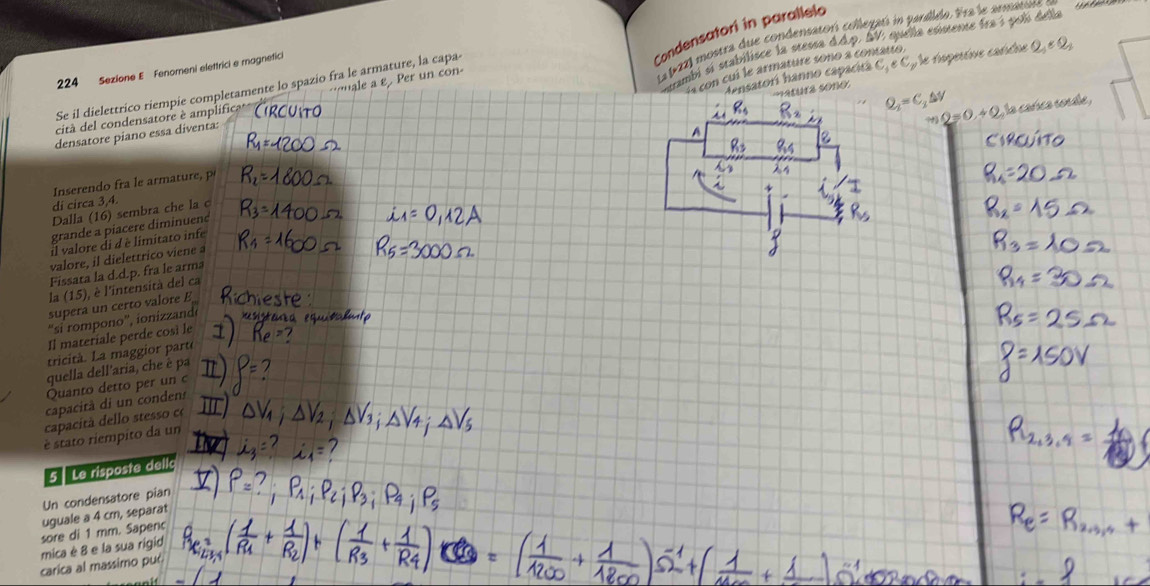 224 Sezione E Fenomeni elettrici e magnetici
Se il dielettrico riempie completamente lo spazio fra le armature, la capa-
cità del condensatore è amplifica
uguale a ε. Per un con-
densatore piano essa diventa:
Inserendo fra le armature, p
di circa 3,4.
Dalla (16) sembra che la c
grande a piacere diminuend
il valore di d è limitato infe
valore, il dielettrico viene a
Fissata la d.d.p. fra le arma
la (15), è l'intensità del ca
supera un certo valore E
"si rompono", ionizzand
Il materiale perde così le
tricità. La maggior parte
quella dell'aria, che è pa
Quanto detto per un c
capacità di un condens
capacità dello stesso co
è stato riempito da un
5 Le risposte della
Un condensatore pian
uguale a 4 cm, separat
sore di 1 mm. Sapend
mica è 8 e la sua rigid
carica al massimo può
Condensatori in parallelo
La [▸22] mostra due condensatori collegati in parallelo. Fra le armature
entrambi si stabilisce la stessa d.d.p. ΔV, quella esistente fra i poli della
con cui le armature sono a contatto.
densatori hanno capacità C₁ e C₂, le rispettive cariche Q₁ e Q₂
armatura sono:
Q₂ = C₂ ΔV
Q = Q₁ + Q₂ la carica totale,
CIRCUITO
R₁=1200 Ω
R₂=1800 Ω
R₃=1400 Ω i₁=0,12A
R₄=1600 Ω R₅=3000 Ω
Richieste:
resistenza equivalente
I) Re=?
II) f=?
III) ΔV₁; ΔV₂; ΔV₃; ΔV₄; ΔV₅
IV) i₃=? i₁=?
V) P=?; P₁; P₂; P₃; P₄; P₅
(1/R₁ + 1/R₂) + (1/R₃ + 1/R₄) = (1/1200 + 1/1800) Ω⁻¹ + (
i₁ R₁ R₂ i₂
A R₃ R₄ B
i₃ i₄
i + i₅ I
R₅
f
CIRCUITO
R₁=20 Ω
R₂=15 Ω
R₃=10 Ω
R₄=30 Ω
R₅=25 Ω
f=150V
R₂,₃,₄ =
Re = R₂,₃,₄ +